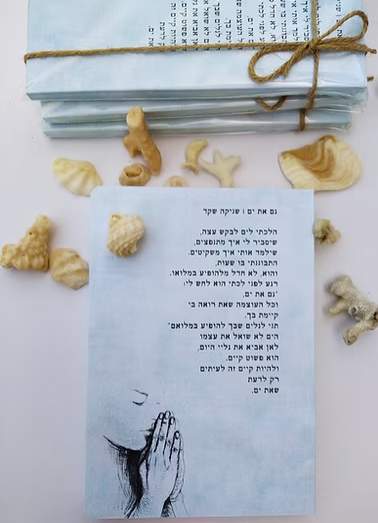 גם את ים | שניקה שקד
הלכתי לים לבקש עצה,
שיסביר לי איך מתנפצים,
שילמד אותי איך משקיטים.
התבוננתי בו שעות,
והוא, לא חדל מלהופיע במלואו.
רגע לפני לכתי הוא לחש לי:
"גם את ים,
וכל העוצמה שאת רואה בי
קיימת בך.
תני לגלים שבך להופיע במלואם"
הים לא שואל את עצמו
לאן אביא את גליי היום,
הוא פשוט קיים.
ולהיות קיים זה לעיתים
רק לדעת
שאת ים.